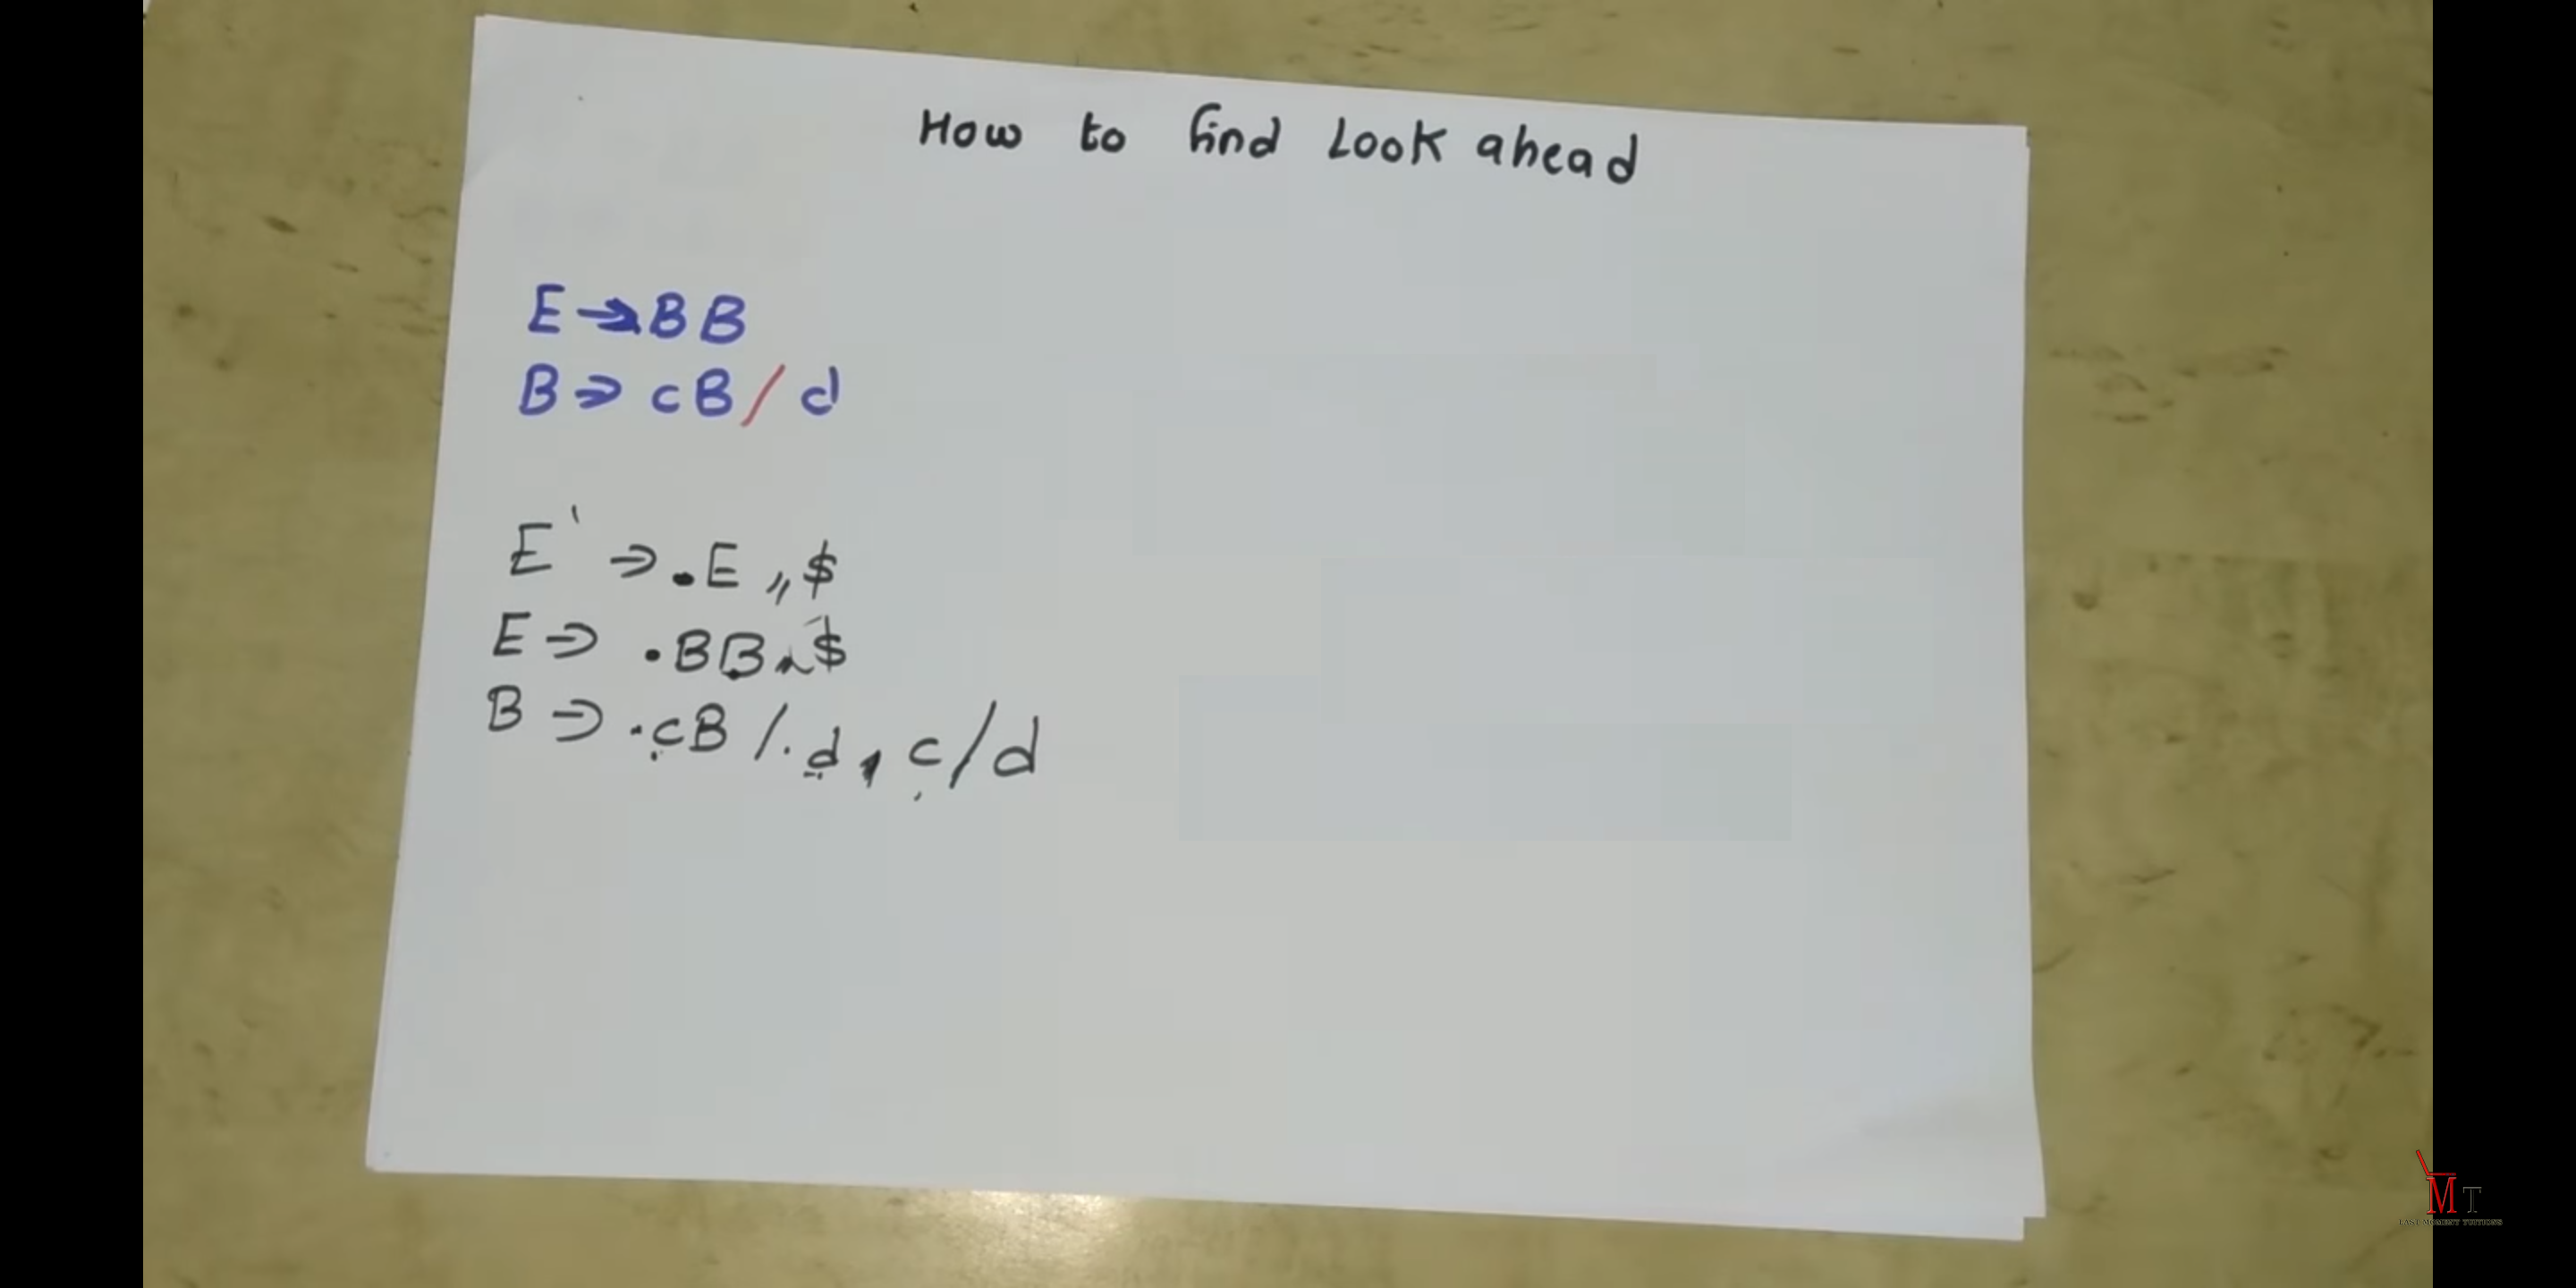 How to find Look ahead
E → B B
B → c B / d
E' → .E ,, $
E → .BB, $
B → .cB / .d , c/d
MT
LAST MOMENT TUITIONS